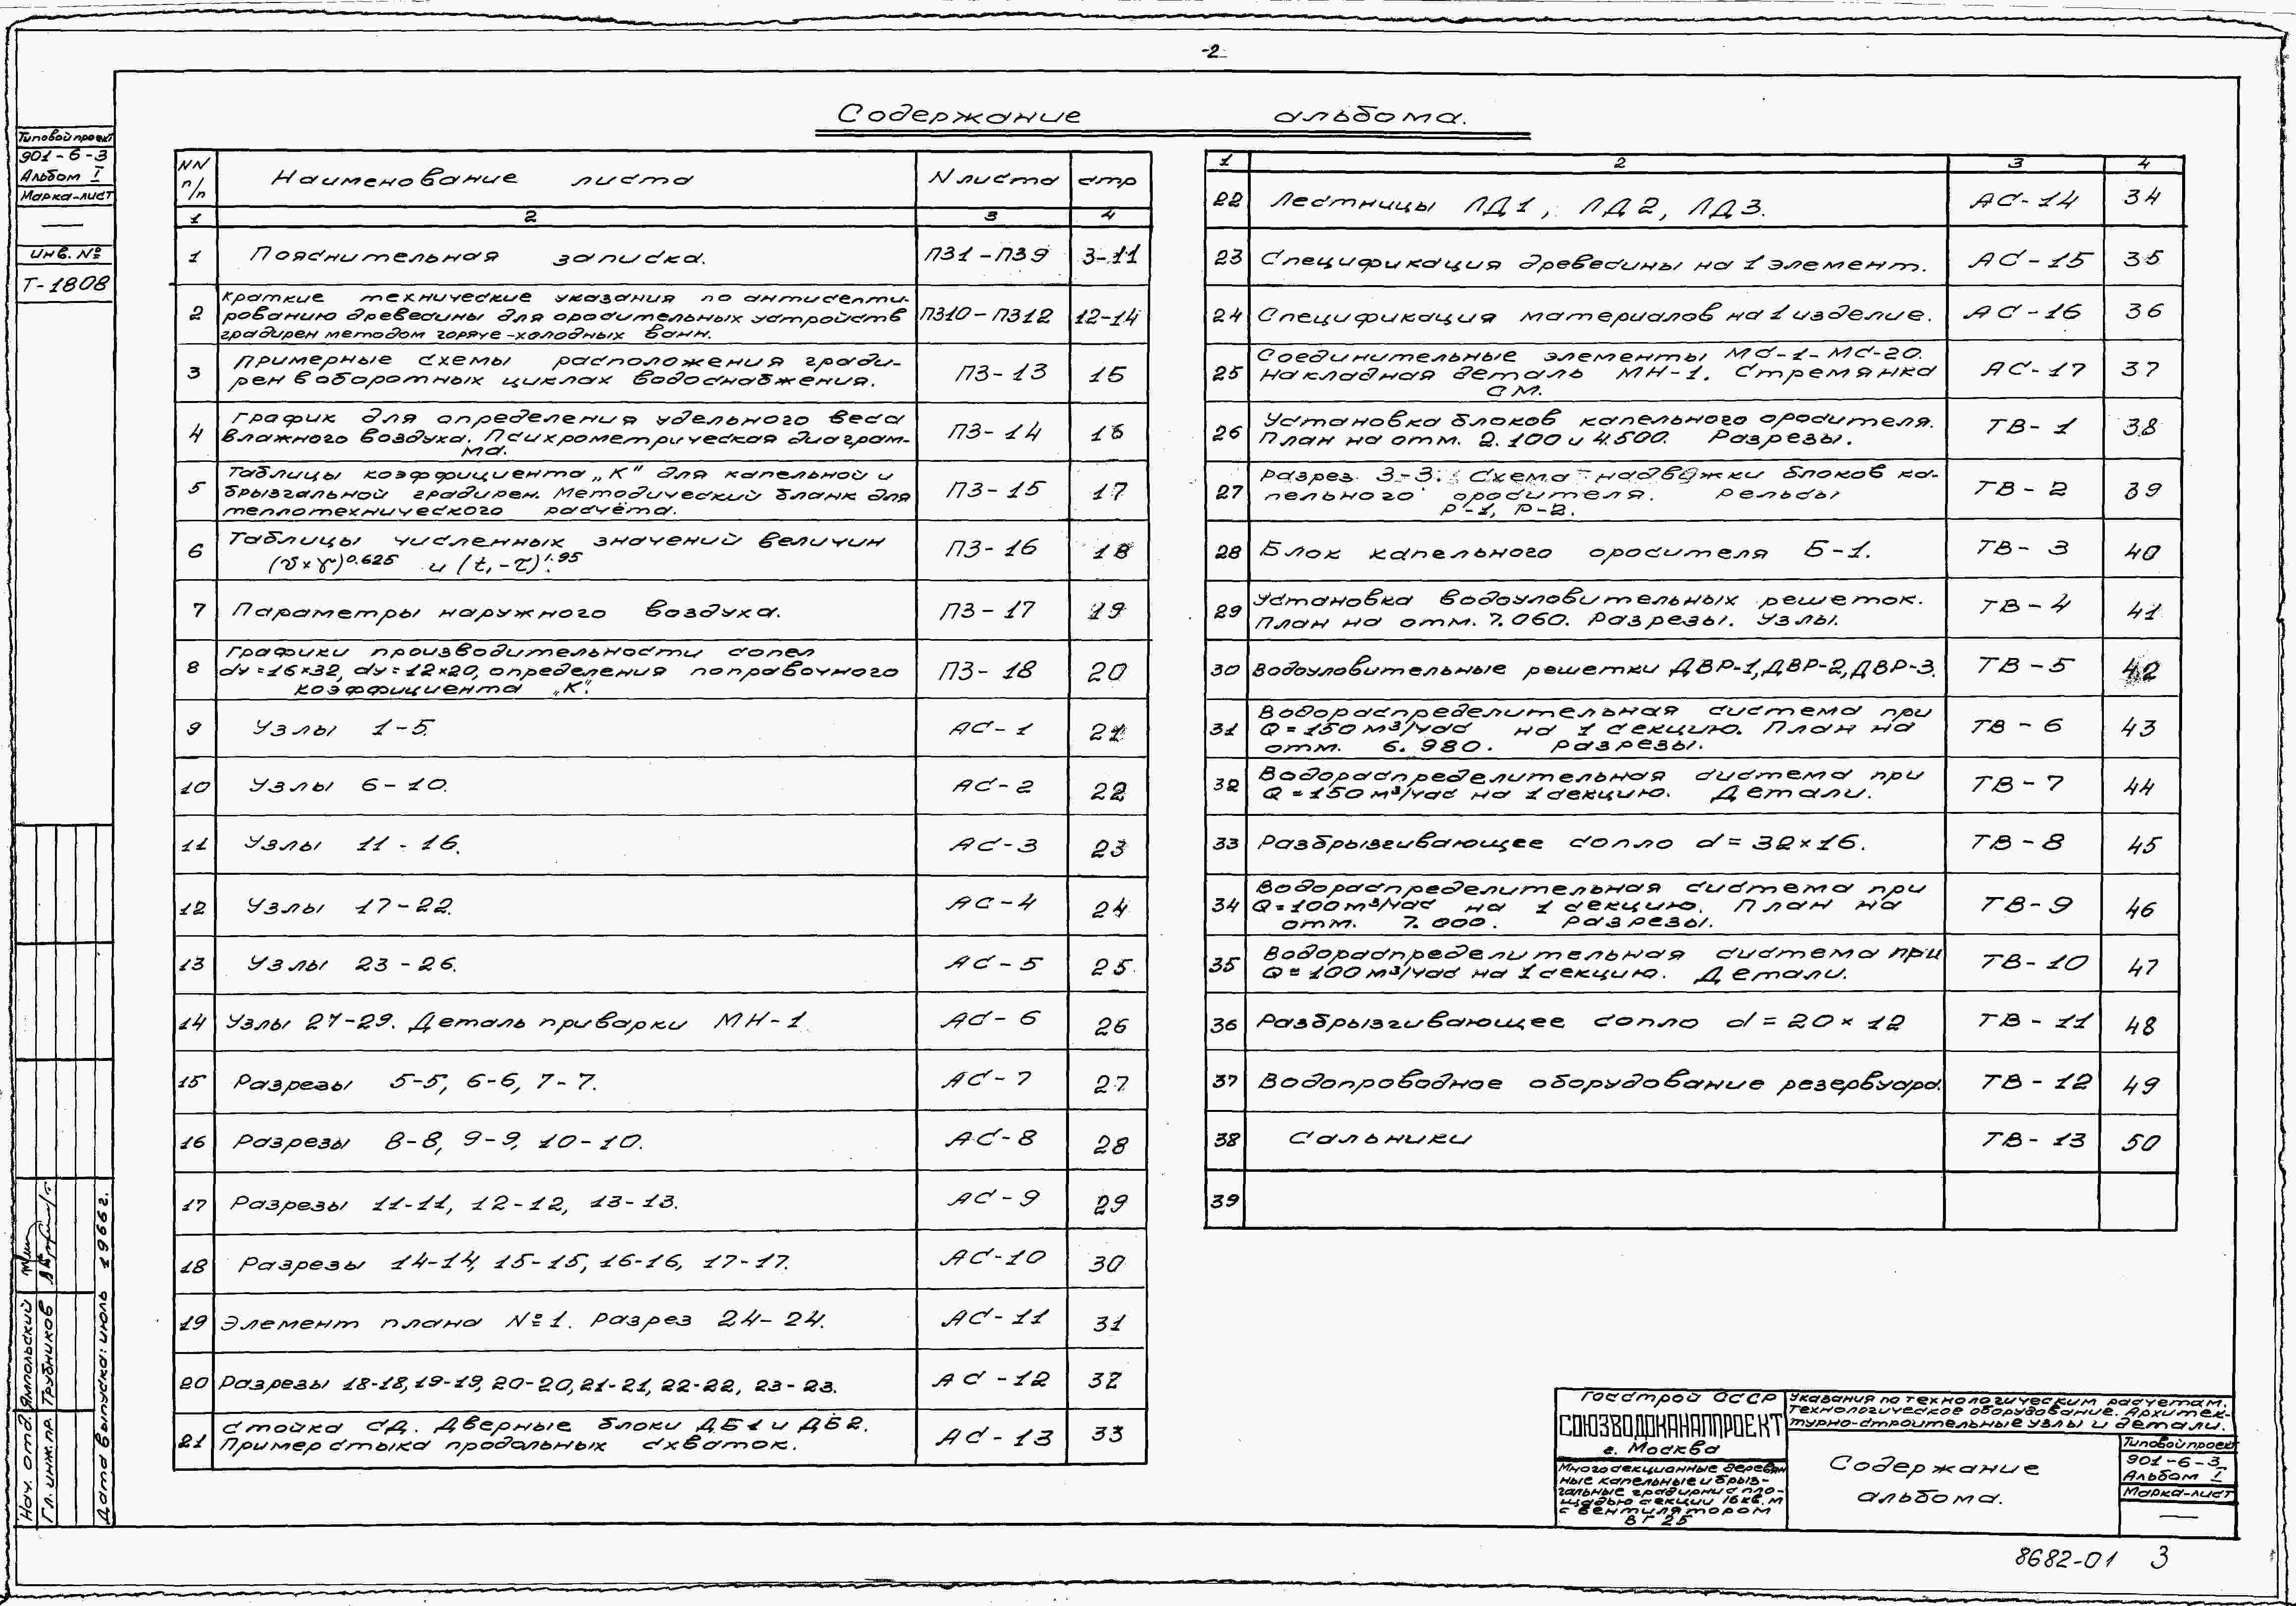 -2-
Содержание альбома.
Типовой проект
901-6-3
Альбом I
Марка-лист
—
Инв. №
Т-1808
NN п/п
Наименование листа
N листа
стр
1 2 3 4
1 Пояснительная записка. ПЗ1-ПЗ9 3-11
2 Краткие технические указания по антисепти-
рованию древесины для оросительных устройств ПЗ10-ПЗ12 12-14
градирен методом горяче-холодных ванн.
3 Примерные схемы расположения гради-
рен в оборотных циклах водоснабжения. ПЗ-13 15
4 График для определения удельного веса
влажного воздуха. Психрометрическая диаграм- ПЗ-14 16
ма.
5 Таблицы коэффициента „К" для капельной и
брызгальной градирен. Методический бланк для ПЗ-15 17
теплотехнического расчёта.
6 Таблицы численных значений величин ПЗ-16 18
(υ×γ)^0.625 и (t₁-τ)^1.95
7 Параметры наружного воздуха. ПЗ-17 19
8 Графики производительности сопел
dу=16×32, dу=12×20, определения поправочного ПЗ-18 20
коэффициента „К".
9 Узлы 1-5. АС-1 21
10 Узлы 6-10. АС-2 22
11 Узлы 11-16. АС-3 23
12 Узлы 17-22. АС-4 24
13 Узлы 23-26. АС-5 25
14 Узлы 27-29. Деталь приварки МН-1 АС-6 26
15 Разрезы 5-5, 6-6, 7-7. АС-7 27
16 Разрезы 8-8, 9-9, 10-10. АС-8 28
17 Разрезы 11-11, 12-12, 13-13. АС-9 29
18 Разрезы 14-14, 15-15, 16-16, 17-17. АС-10 30
19 Элемент плана №1. Разрез 24-24. АС-11 31
20 Разрезы 18-18, 19-19, 20-20, 21-21, 22-22, 23-23. АС-12 32
21 Стойка СД. Дверные блоки ДБ1 и ДБ2.
Пример стыка продольных схваток. АС-13 33
1 2 3 4
22 Лестницы ЛД1, ЛД2, ЛД3. АС-14 34
23 Спецификация древесины на 1 элемент. АС-15 35
24 Спецификация материалов на 1 изделие. АС-16 36
25 Соединительные элементы МС-1-МС-20.
Накладная деталь МН-1. Стремянка АС-17 37
СМ.
26 Установка блоков капельного оросителя.
План на отм. 2.100 и 4.500. Разрезы. ТВ-1 38
27 Разрез 3-3. Схема надвижки блоков ка-
пельного оросителя. Рельсы ТВ-2 39
Р-1, Р-2.
28 Блок капельного оросителя Б-1. ТВ-3 40
29 Установка водоуловительных решеток.
План на отм. 7.060. Разрезы. Узлы. ТВ-4 41
30 Водоуловительные решетки ДВР-1, ДВР-2, ДВР-3. ТВ-5 42
31 Водораспределительная система при
Q=150 м³/час на 1 секцию. План на ТВ-6 43
отм. 6.980. Разрезы.
32 Водораспределительная система при
Q=150 м³/час на 1 секцию. Детали. ТВ-7 44
33 Разбрызгивающее сопло d=32×16. ТВ-8 45
34 Водораспределительная система при
Q=100 м³/час на 1 секцию. План на ТВ-9 46
отм. 7.000. Разрезы.
35 Водораспределительная система при
Q=100 м³/час на 1 секцию. Детали. ТВ-10 47
36 Разбрызгивающее сопло d=20×12 ТВ-11 48
37 Водопроводное оборудование резервуара. ТВ-12 49
38 Сальники ТВ-13 50
39
Нач. отд. Ямпольский
Гл. инж. пр. Трубников
Дата выпуска: июль 1966 г.
Госстрой СССР
СОЮЗВОДОКАНАЛПРОЕКТ
г. Москва
Многосекционные деревян
ные капельные и брыз-
гальные градирни с пло-
щадью секции 16 кв. м
с вентилятором
ВГ 25
Указания по технологическим расчетам.
Технологическое оборудование. Архитек-
турно-строительные узлы и детали.
Содержание
альбома.
Типовой проект
901-6-3
Альбом I
Марка-лист
—
8682-01 3